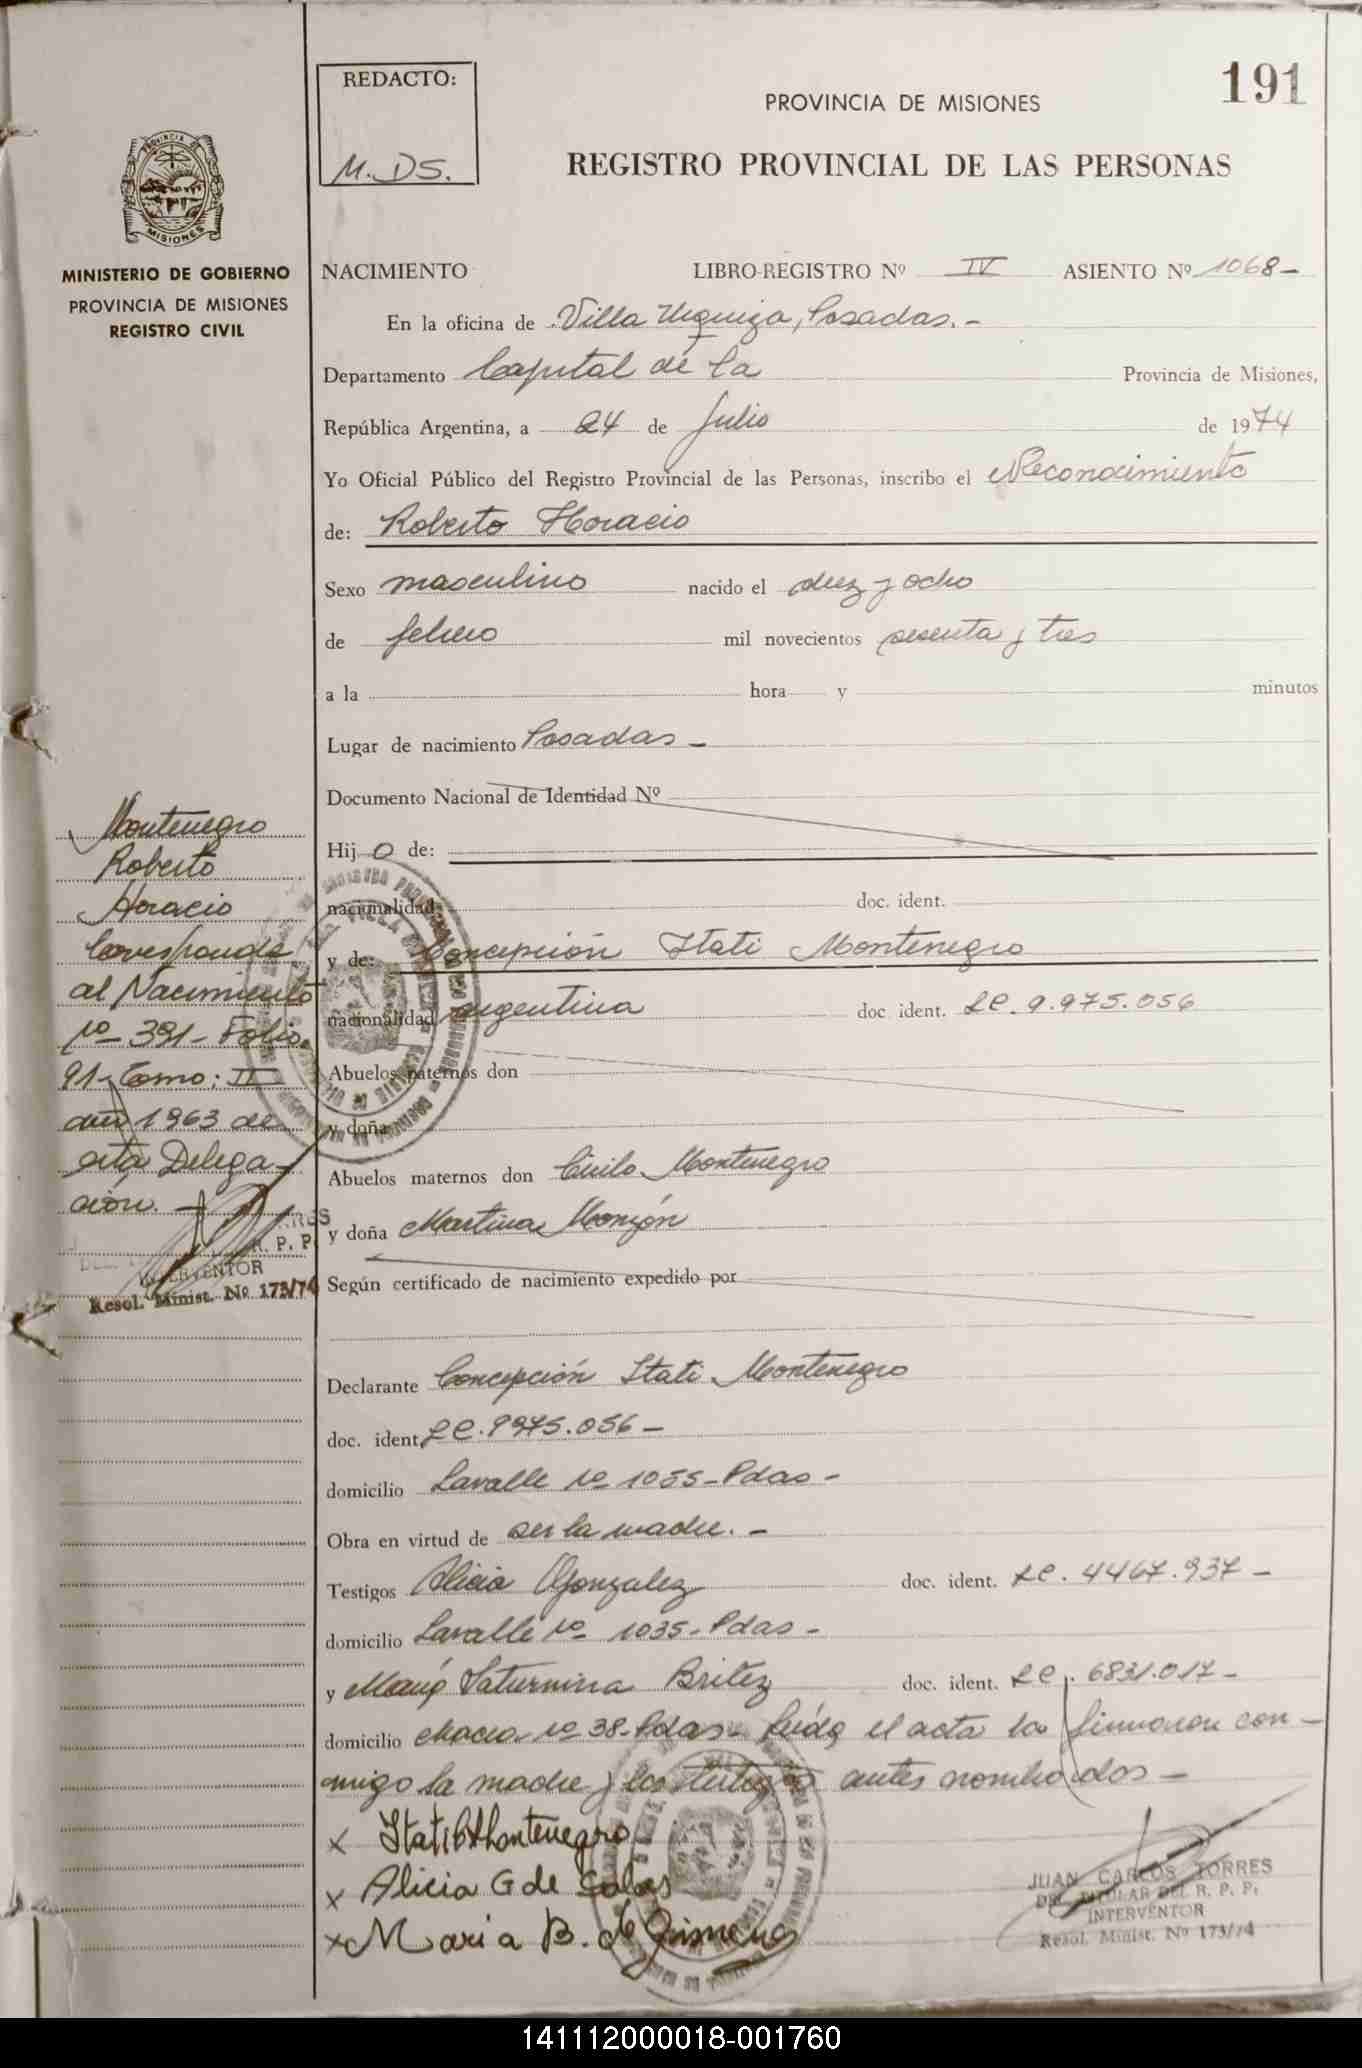 191
REDACTO:
M. DS.
PROVINCIA DE MISIONES
REGISTRO PROVINCIAL DE LAS PERSONAS
MISIONES
MINISTERIO DE GOBIERNO
PROVINCIA DE MISIONES
REGISTRO CIVIL
NACIMIENTO LIBRO-REGISTRO Nº IV ASIENTO Nº 1068-
En la oficina de Villa Urquiza, Posadas.-
Departamento Capital de la Provincia de Misiones,
República Argentina, a 24 de Julio de 1974
Yo Oficial Público del Registro Provincial de las Personas, inscribo el Reconocimiento
de: Roberto Horacio
Sexo masculino nacido el diez y ocho
de febrero mil novecientos sesenta y tres
a la hora y minutos
Lugar de nacimiento Posadas -
Documento Nacional de Identidad Nº
Hij o de:
nacionalidad doc. ident.
y de: Concepción Itati Montenegro
nacionalidad argentina doc ident. LC. 9.975.056
Abuelos paternos don
y doña
Abuelos maternos don Cirilo Montenegro
y doña Martina Monzón
Según certificado de nacimiento expedido por
Declarante Concepción Itati Montenegro
doc. ident. LC. 9975.056 -
domicilio Lavalle nº 1055 - Pdas -
Obra en virtud de ser la madre. -
Testigos Alicia Gonzalez doc. ident. LC. 4467.937 -
domicilio Lavalle nº 1035 - Pdas -
y María Saturnina Britez doc. ident. LC. 6831.017 -
domicilio Chaco nº 38 - Pdas - Leída el acta la firmaron con-
migo la madre y los testigos antes nombrados -
x Itati C Montenegro
x Alicia G de
x Maria B. de Gimenez
JUAN CARLOS TORRES
DEL TITULAR DEL R. P. P.
INTERVENTOR
Resol. Minist. Nº 173/74
Montenegro
Roberto
Horacio
Corresponde
al Nacimiento
nº 391 - Folio
91 - Tomo: II
año 1963 de
esta Delega-
ción. -
R. P. P.
INTERVENTOR
Resol. Minist. Nº 173/74
141112000018-001760